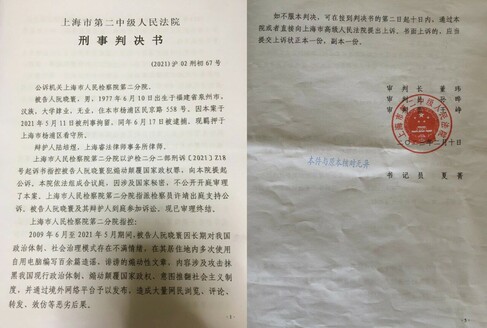 上海市第二中级人民法院
刑事判决书
(2021)沪02刑初67号
公诉机关上海市人民检察院第二分院。
被告人阮晓寰，男，1977年6月10日出生于福建省泉州市，
汉族，大学肄业，无业，住本市杨浦区民京路558号。因本案于
2021年5月11日被刑事拘留，同年6月17日被逮捕。现羁押于
上海市杨浦区看守所。
辩护人陆培煜，上海睿法律师事务所律师。
上海市人民检察院第二分院以沪检二分二部刑诉〔2021〕Z18
号起诉书指控被告人阮晓寰犯煽动颠覆国家政权罪，向本院提起
公诉。本院依法组成合议庭，因涉及国家秘密，不公开开庭审理
了本案。上海市人民检察院第二分院指派检察员许靖出庭支持公
诉，被告人阮晓寰及其辩护人到庭参加诉讼。现已审理终结。
上海市人民检察院第二分院指控：
2009年6月至2021年5月间，被告人阮晓寰因长期对我国
政治体制、社会治理模式存在不满情绪，在其居住地内多次使用
自用电脑编写百余篇造谣、诽谤的煽动性文章，内容涉及攻击抹
黑我国现行政治体制，煽动颠覆国家政权，意图推翻社会主义制
度，并通过境外网络平台予以发布，造成大量网民浏览、评论、
转发、效仿等恶劣后果。
- 1 -
如不服本判决，可在接到判决书的第二日起十日内，通过本
院或者直接向上海市高级人民法院提出上诉。书面上诉的，应当
提交上诉状正本一份，副本一份。
审判长 董玮
审判员
审判员
二月十日
本件与原本核对无异
书记员 夏菁
- 5 -